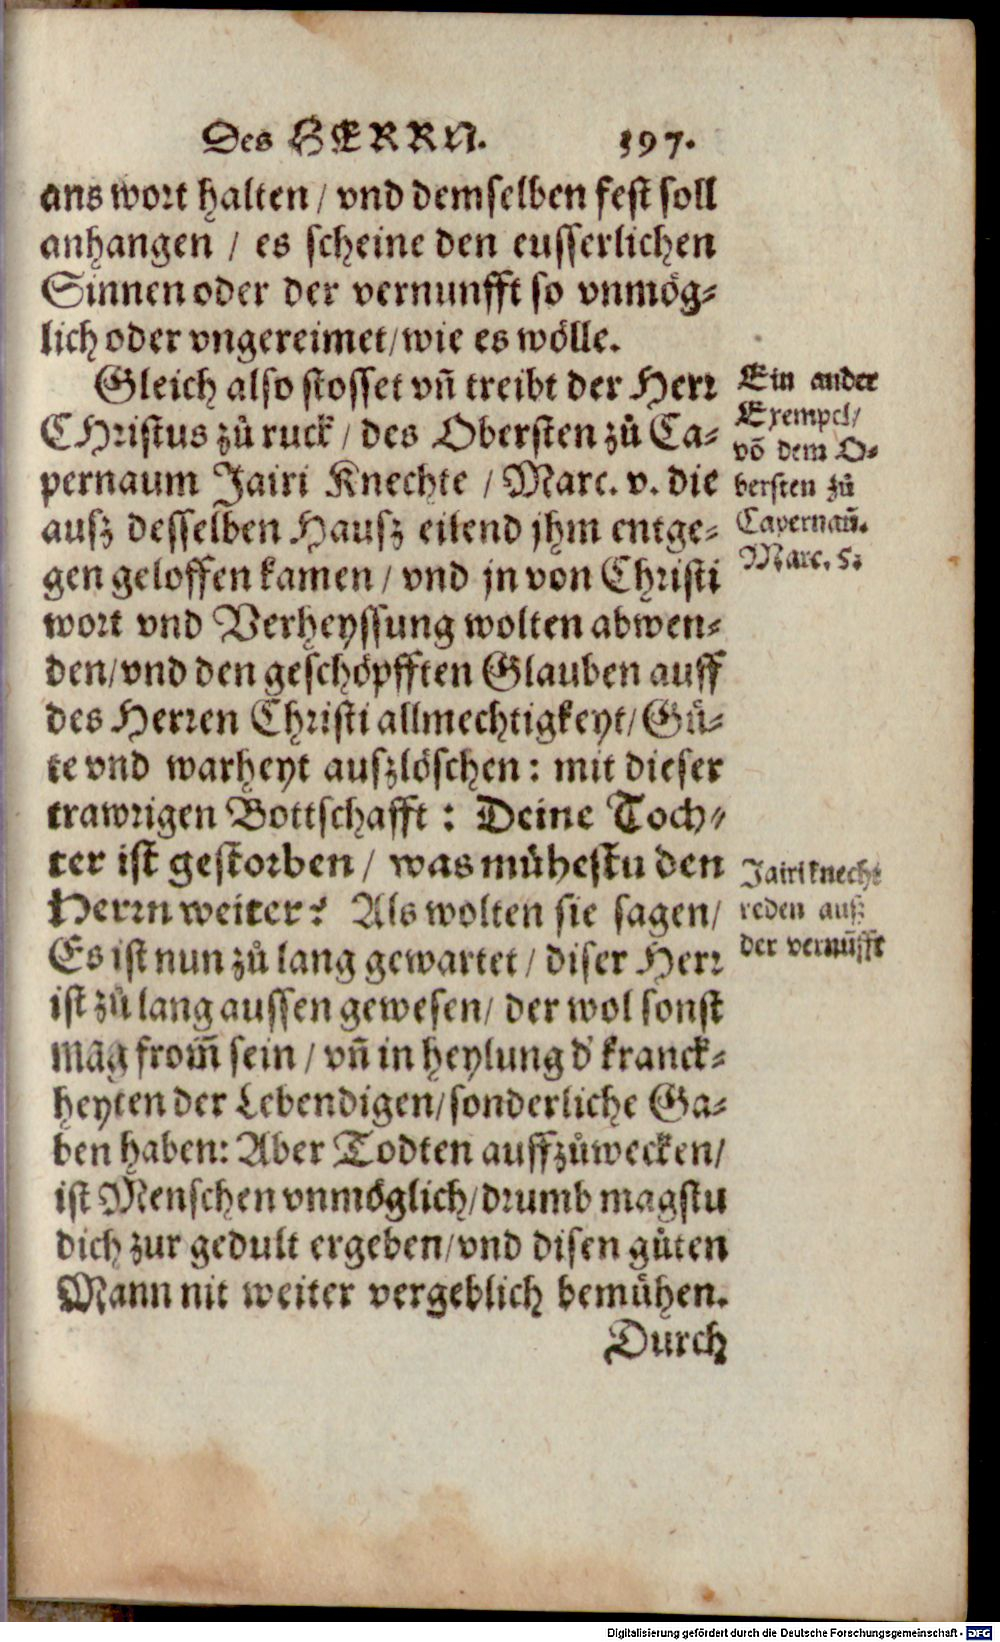 Des HERRN. 397.
ans wort halten / vnd demselben fest soll
anhangen / es scheine den eusserlichen
Sinnen oder der vernunfft so vnmög-
lich oder vngereimet / wie es wölle.
Gleich also stosset vñ treibt der Herr
CHristus zů ruck / des Obersten zů Ca-
pernaum Jairi Knechte / Marc. v. die
ausz desselben Hausz eilend jhm entge-
gen geloffen kamen / vnd jn von Christi
wort vnd Verheyssung wolten abwen-
den / vnd den geschöpfften Glauben auff
des Herren Christi allmechtigkeyt / Gü-
te vnd warheyt auszlöschen: mit dieser
trawrigen Bottschafft: Deine Toch-
ter ist gestorben / was mühestu den
Herrn weiter? Als wolten sie sagen /
Es ist nun zů lang gewartet / diser Herr
ist zů lang aussen gewesen / der wol sonst
mag from̃ sein / vñ in heylung d' kranck-
heyten der Lebendigen / sonderliche Ga-
ben haben: Aber Todten auffzůwecken /
ist Menschen vnmöglich / drumb magstu
dich zur gedult ergeben / vnd disen gůten
Mann nit weiter vergeblich bemühen.
Durch
Ein ander
Exempel /
võ dem O-
bersten zů
Capernaũ.
Marc. 5.
Jairi knecht
reden ausz
der vernũfft
Digitalisierung gefördert durch die Deutsche Forschungsgemeinschaft - DFG